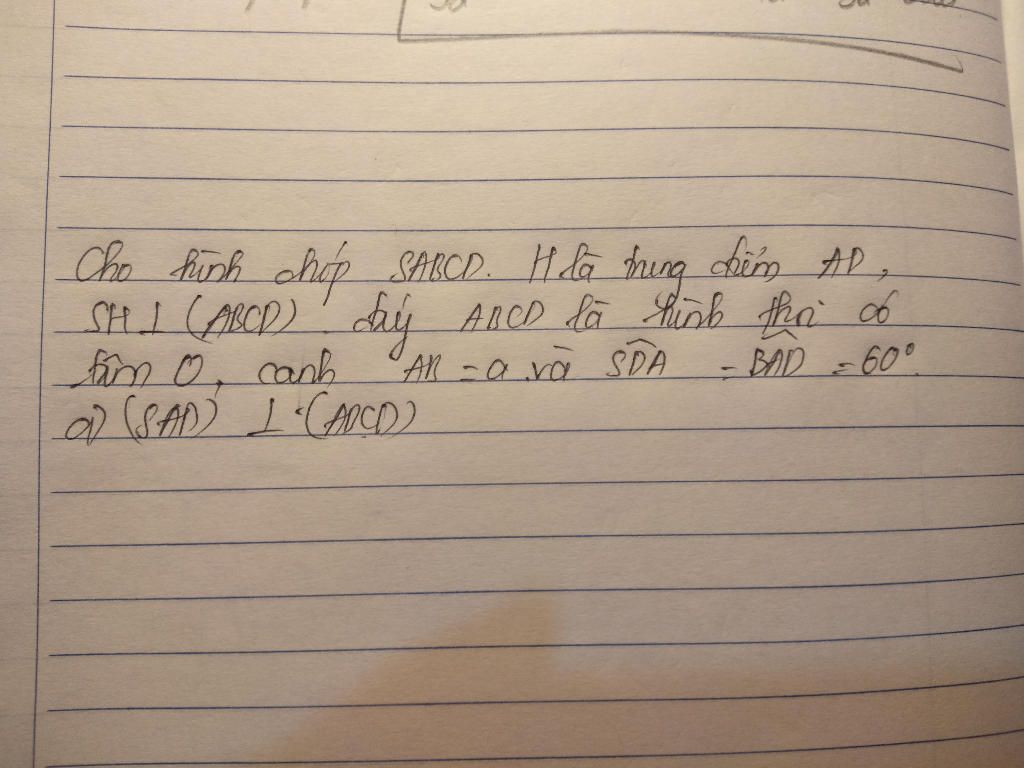 Cho hình chóp SABCD. H là trung điểm AD,
SH ⊥ (ABCD). đáy ABCD là hình thoi có
tâm O, cạnh AB = a và SDA = BAD = 60°.
a) (SAD) ⊥ (ABCD)